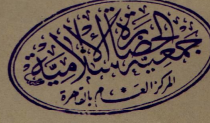 جمعية الحضارة الإسلامية
المركز العام بالقاهرة